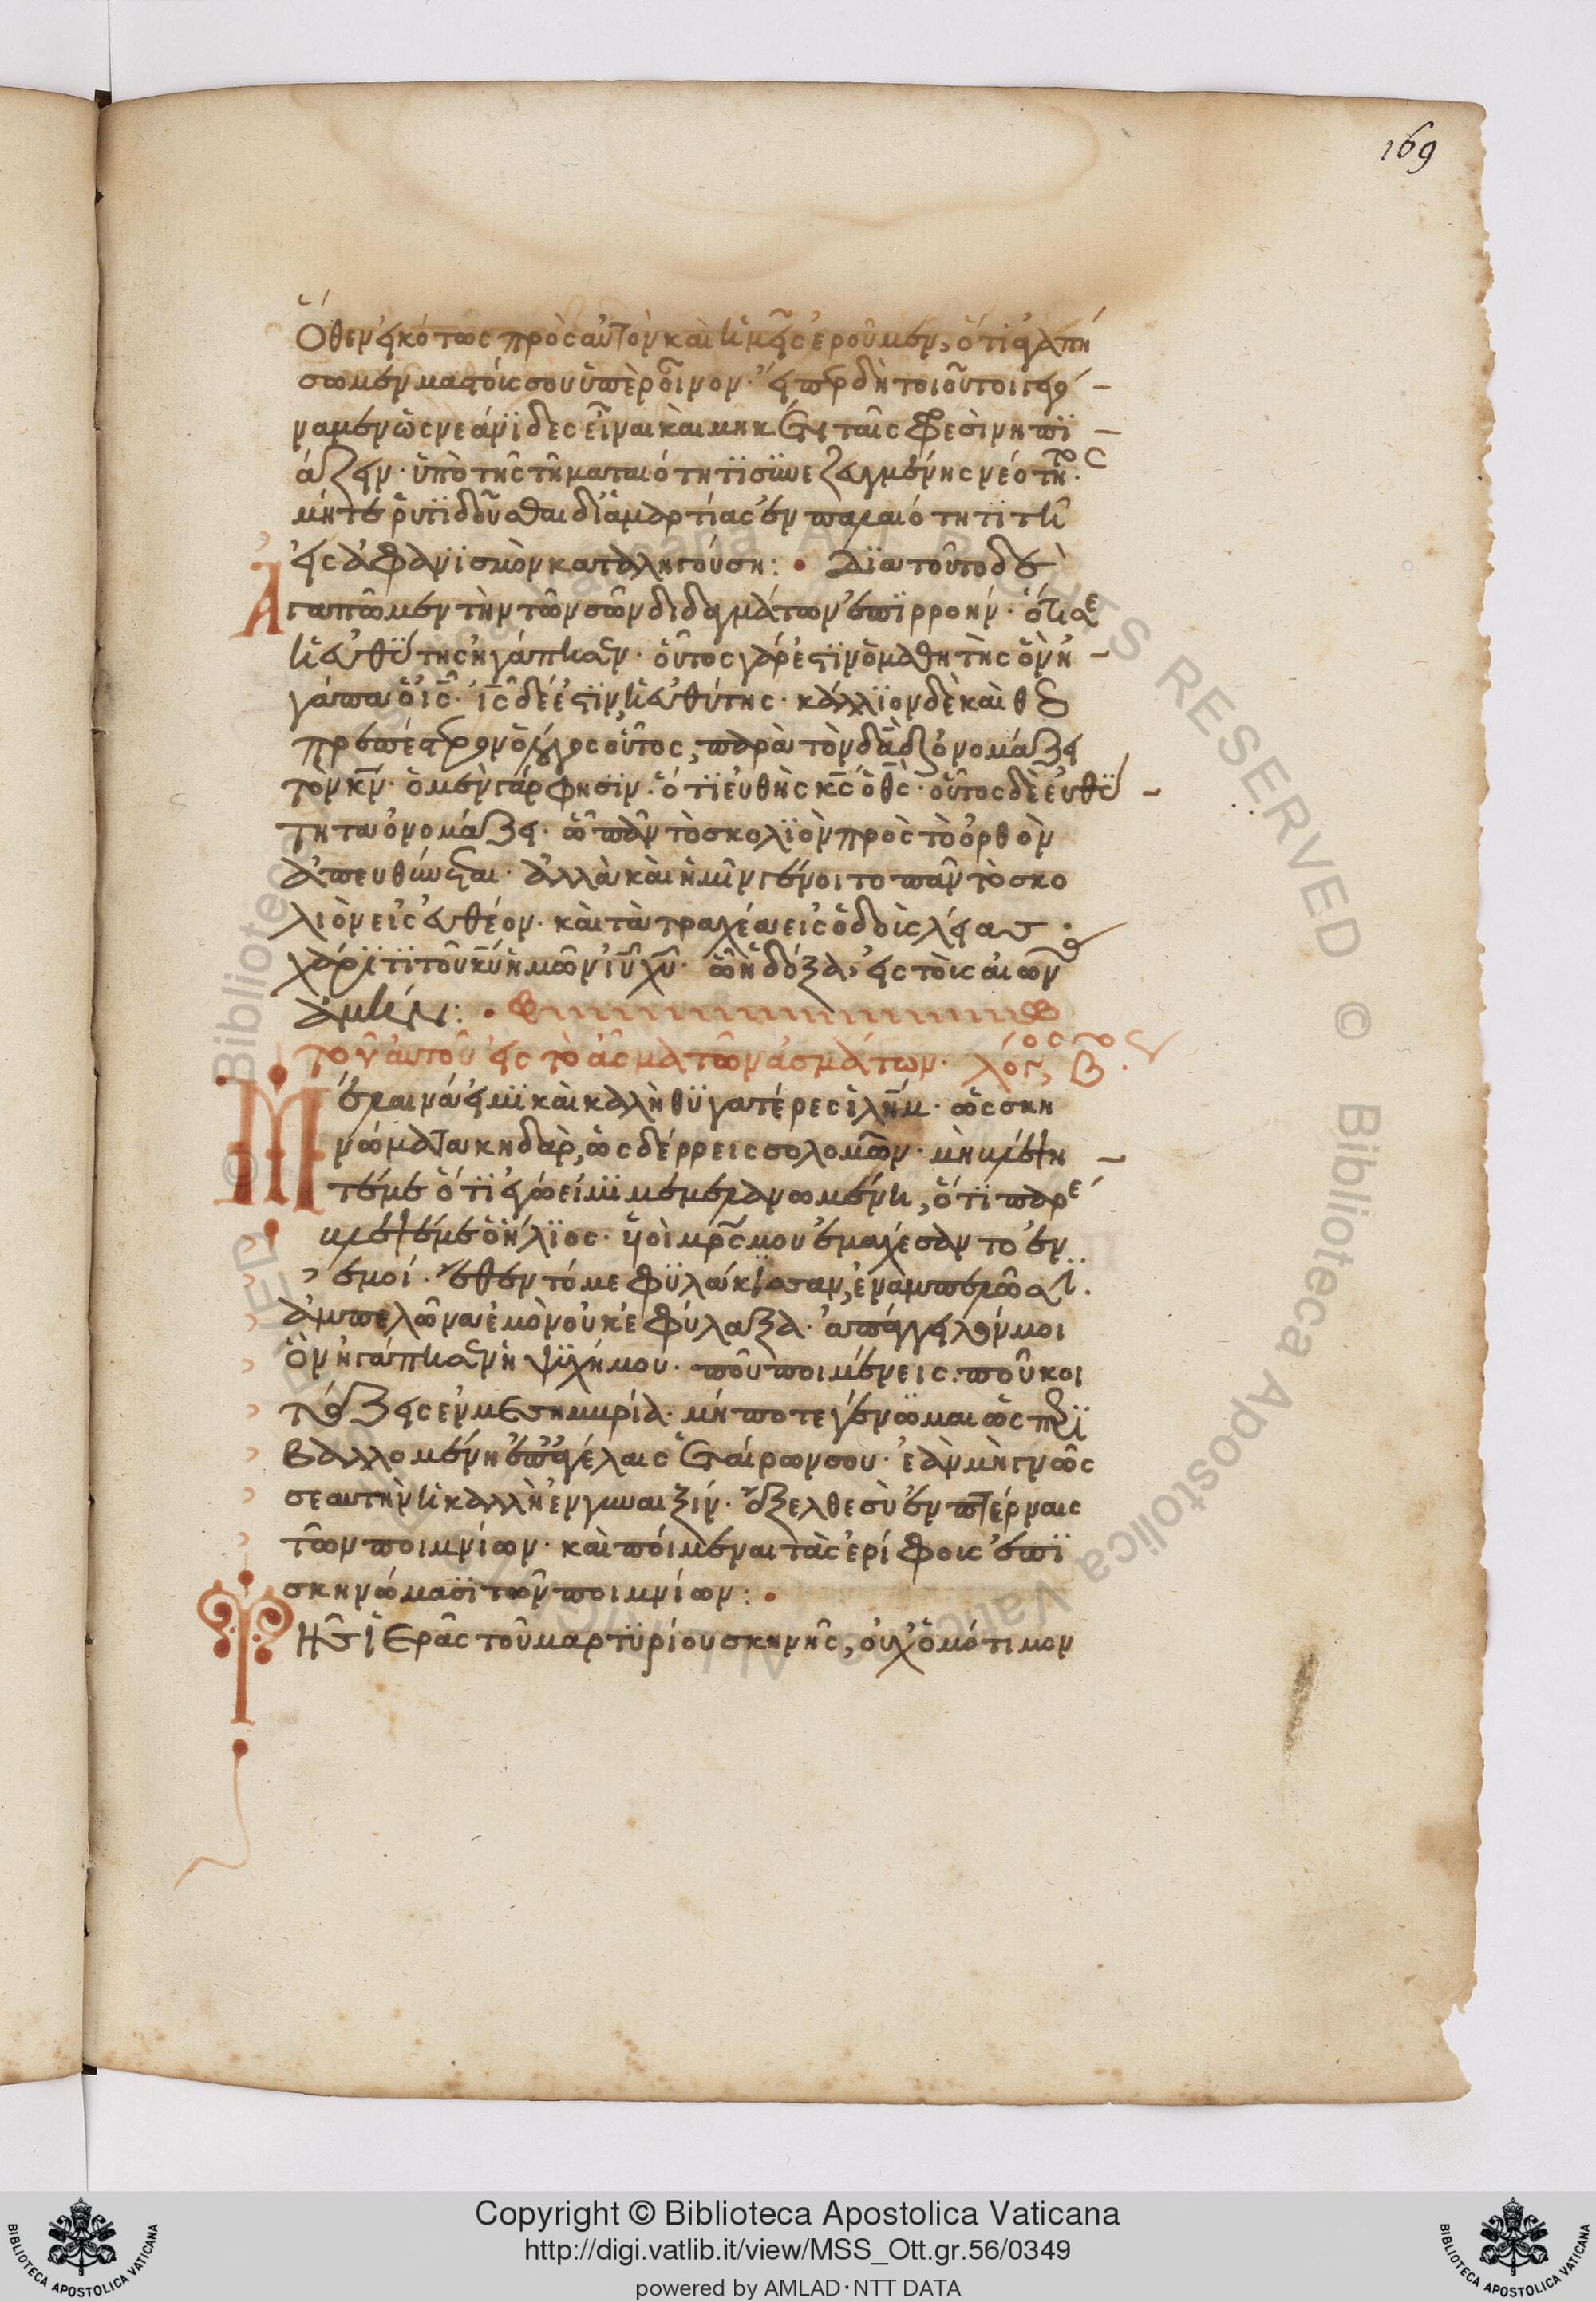 169
Ὅθεν εἰκότως πρὸς αὐτὸν καὶ ἡμεῖς ἐροῦμεν, ὅτι ἀγαπή
σωμεν μαστούς σου ὑπὲρ οἶνον· εἴπερ δὴ τοιοῦτοι γε
ναμεν ὡς νεάνιδες εἶναι καὶ μηκέτι ταῖς φρεσὶ νηπι
άζειν· ὑπὸ τῆς τῇ ματαιότητι συνεζευγμένης νεότητος.
μήτε ῥυτιδοῦσθαι δι' ἁμαρτίας ἐν παλαιότητι τῇ
εἰς ἀφανισμὸν καταληγούσῃ: Διατοῦτο δὲ
Ἀγαπῶμεν τὴν τῶν σῶν διδαγμάτων ἐπιρροήν· ὅτι σε
ἡ εὐθύτης ἠγάπησεν· οὗτος γάρ ἐστιν ὁ μαθητὴς ὃν ἠ
γάπα ὁ ις· ις δέ ἐστιν, ἡ εὐθύτης· κάλλιον δὲ καὶ θ
πρεπέστερον ὁ λόγος οὗτος, παρὰ τὸν δαδ ὀνομάζει
τὸν κν· ὁ μὲν γάρ φησιν· ὅτι εὐθὴς κς ὁ θς· οὗτος δὲ εὐθύ
τητα ὀνομάζει· ᾧ πᾶν τὸ σκολιὸν πρὸς τὸ ὀρθὸν
ἀπευθύνεται· ἀλλὰ καὶ ἡμῖν γένοιτο πᾶν τὸ σκο
λιὸν εἰς εὐθέον· καὶ τὰ τραχέα εἰς ὁδοὺς λείας·
χάριτι τοῦ κυ ἡμῶν ιυ χυ· ᾧ ἡ δόξα, εἰς τοὺς αἰῶνας
ἀμήν:
τοῦ αὐτοῦ εἰς τὸ ἆσμα τῶν ἀσμάτων· λόγος, β.
Μέλαινά εἰμι καὶ καλὴ θυγατέρες ιλημ· ὡς σκη
νώματα κηδάρ, ὡς δέρρεις σολομών· μὴ βλέψη
τέ με ὅτι ἐγώ εἰμι μεμελανωμένη, ὅτι παρέ
βλεψέ με ὁ ἥλιος· υἱοὶ μρς μου ἐμαχέσαντο ἐν
ἐμοί· ἔθεντό με φυλάκισσαν, ἐν ἀμπελῶσι.
ἀμπελῶνα ἐμὸν οὐκ ἐφύλαξα· ἀπάγγειλόν μοι
ὃν ἠγάπησεν ἡ ψυχή μου· ποῦ ποιμένεις. ποῦ κοι
τάζεις ἐν μεσημβρία· μήποτε γένωμαι ὡς περι
βαλλομένη ἐπ' ἀγέλαις ἑταίρων σου· ἐὰν μὴ γνῶς
σεαυτὴν ἡ καλλὴ ἐν γυναιξίν· ἔξελθε σὺ ἐν πτέρναις
τῶν ποιμνίων· καὶ ποίμεναι τὰς ἐρίφοις ἐπὶ
σκηνώμασι τῶν ποιμνίων:
Τῆς ἱερᾶς τοῦ μαρτυρίου σκηνῆς, οὐχ ὁμότιμον
Copyright © Biblioteca Apostolica Vaticana
http://digi.vatlib.it/view/MSS_Ott.gr.56/0349
powered by AMLAD·NTT DATA
BIBLIOTECA APOSTOLICA VATICANA
BIBLIOTECA APOSTOLICA VATICANA